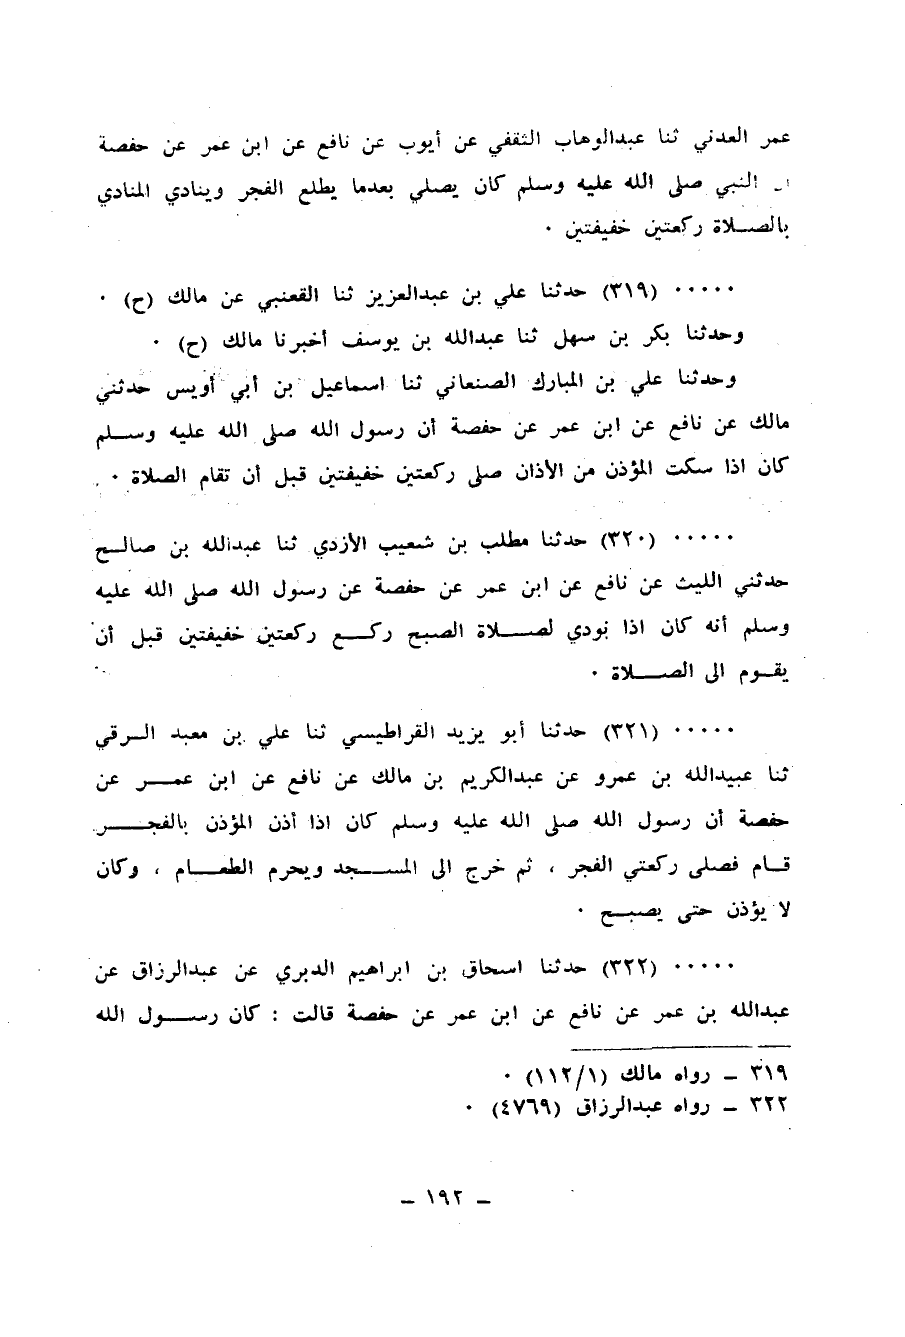 عمر العدني ثنا عبدالوهاب الثقفي عن أيوب عن نافع عن ابن عمر عن حفصة
النبي صلى الله عليه وسلم كان يصلي بعدما يطلع الفجر وينادي المنادي
بالصـــلاة ركعتين خفيفتين ٠
٠٠٠٠٠ (٣١٩) حدثنا علي بن عبدالعزيز ثنا القعنبي عن مالك (ح) ٠
وحدثنا بكر بن سهل ثنا عبدالله بن يوسف أخبرنا مالك (ح) ٠
وحدثنا علي بن المبارك الصنعاني ثنا اسماعيل بن أبي أويس حدثني
مالك عن نافع عن ابن عمر عن حفصة أن رسول الله صلى الله عليه وســلم
كان اذا سكت المؤذن من الأذان صلى ركعتين خفيفتين قبل أن تقام الصلاة ٠
٠٠٠٠٠ (٣٢٠) حدثنا مطلب بن شعيب الأزدي ثنا عبدالله بن صالــح
حدثني الليث عن نافع عن ابن عمر عن حفصة عن رسول الله صلى الله عليه
وسلم أنه كان اذا نودي لصـــلاة الصبح ركـــع ركعتين خفيفتين قبل أن
يقــوم الى الصـــلاة ٠
٠٠٠٠٠ (٣٢١) حدثنا أبو يزيد القراطيسي ثنا علي بن معبد الــرقي
ثنا عبيدالله بن عمرو عن عبدالكريم بن مالك عن نافع عن ابن عمـــر عن
حفصة أن رسول الله صلى الله عليه وسلم كان اذا أذن المؤذن بالفجـــر
قــام فصلى ركعتي الفجر ، ثم خرج الى المســـجد ويحرم الطعـــام ، وكان
لا يؤذن حتى يصبــح ٠
٠٠٠٠٠ (٣٢٢) حدثنا اسحاق بن ابراهيم الدبري عن عبدالرزاق عن
عبدالله بن عمر عن نافع عن ابن عمر عن حفصة قالت : كان رســـول الله
٣١٩ ــ رواه مالك (١١٢/١) ٠
٣٢٢ ــ رواه عبدالرزاق (٤٧٦٩) ٠
ــ ١٩٢ ــ